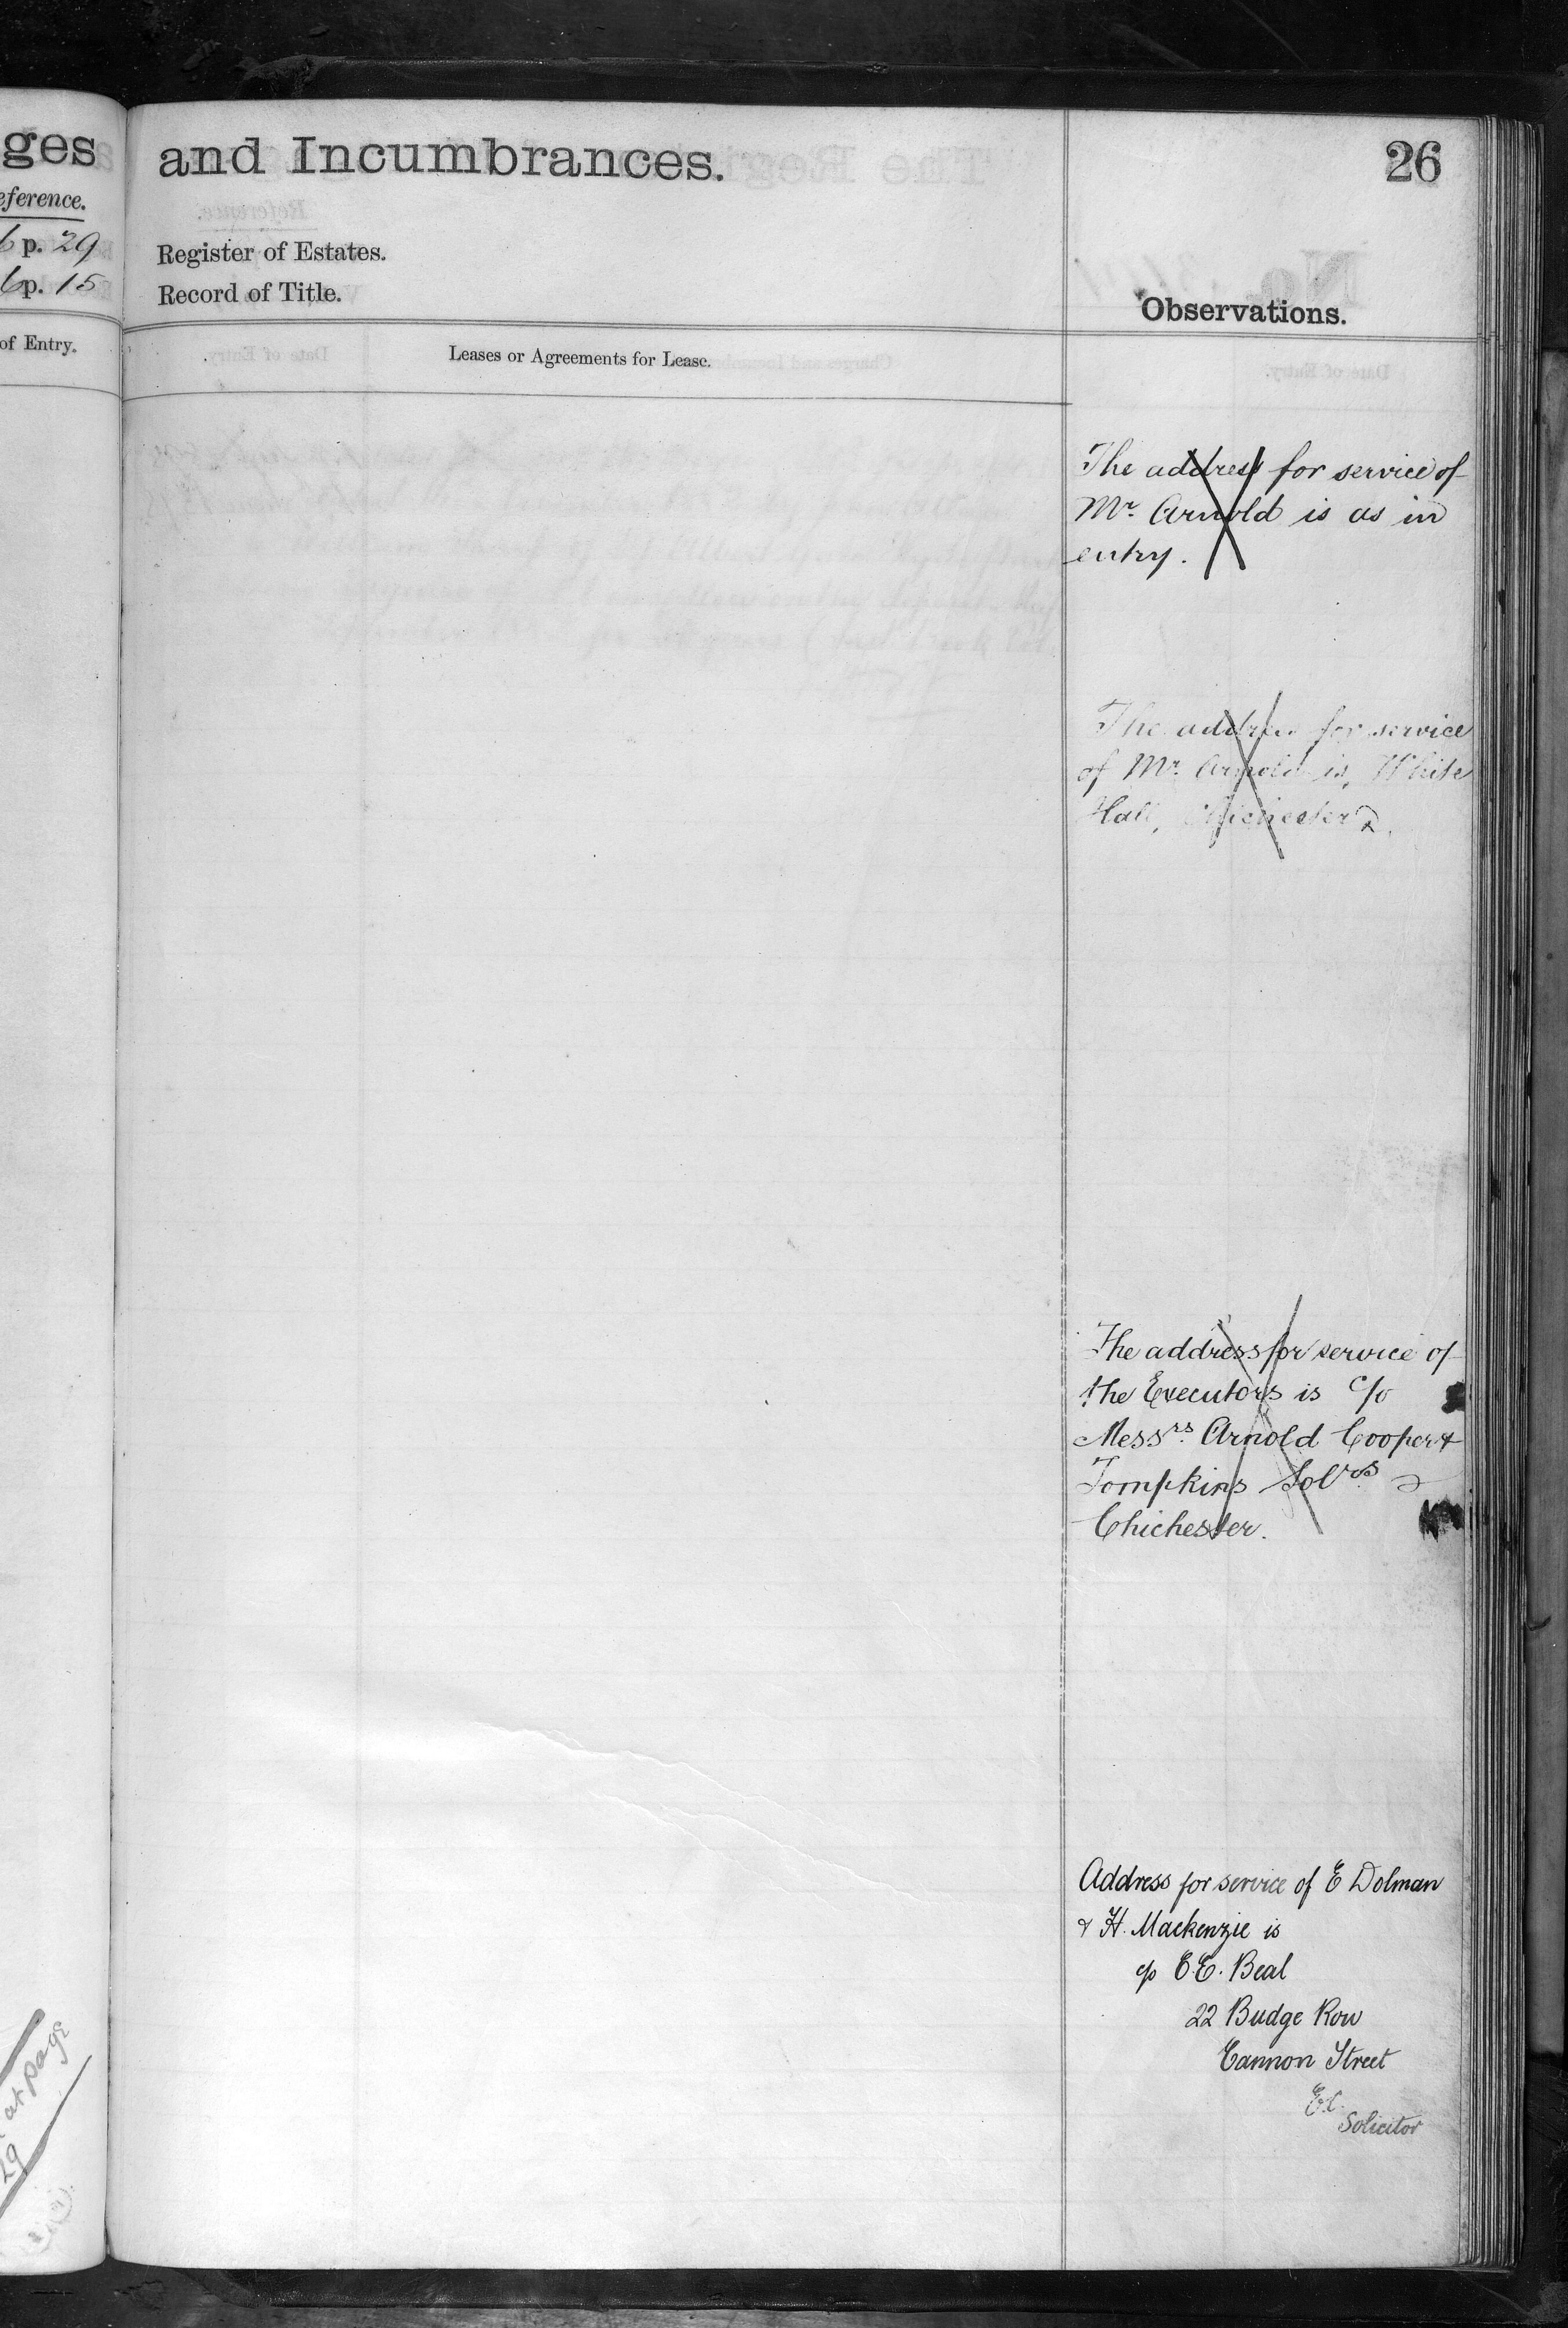 ges
eference.
6 p. 29
6 p. 15
of Entry.
at page
29
and Incumbrances.
26
Register of Estates.
Record of Title.
Observations.
Leases or Agreements for Lease.
The address for service of
Mr. Arnold is as in
entry.
The address for service
of Mr. Arnold is, White
Hall, Chichester.
The address for service of
the Executors is c/o
Messrs. Arnold Cooper &
Tompkins Solrs.
Chichester.
Address for service of E Dolman
& H. Mackenzie is
c/o E.E. Beal
22 Budge Row
Cannon Street
E.C.
Solicitor